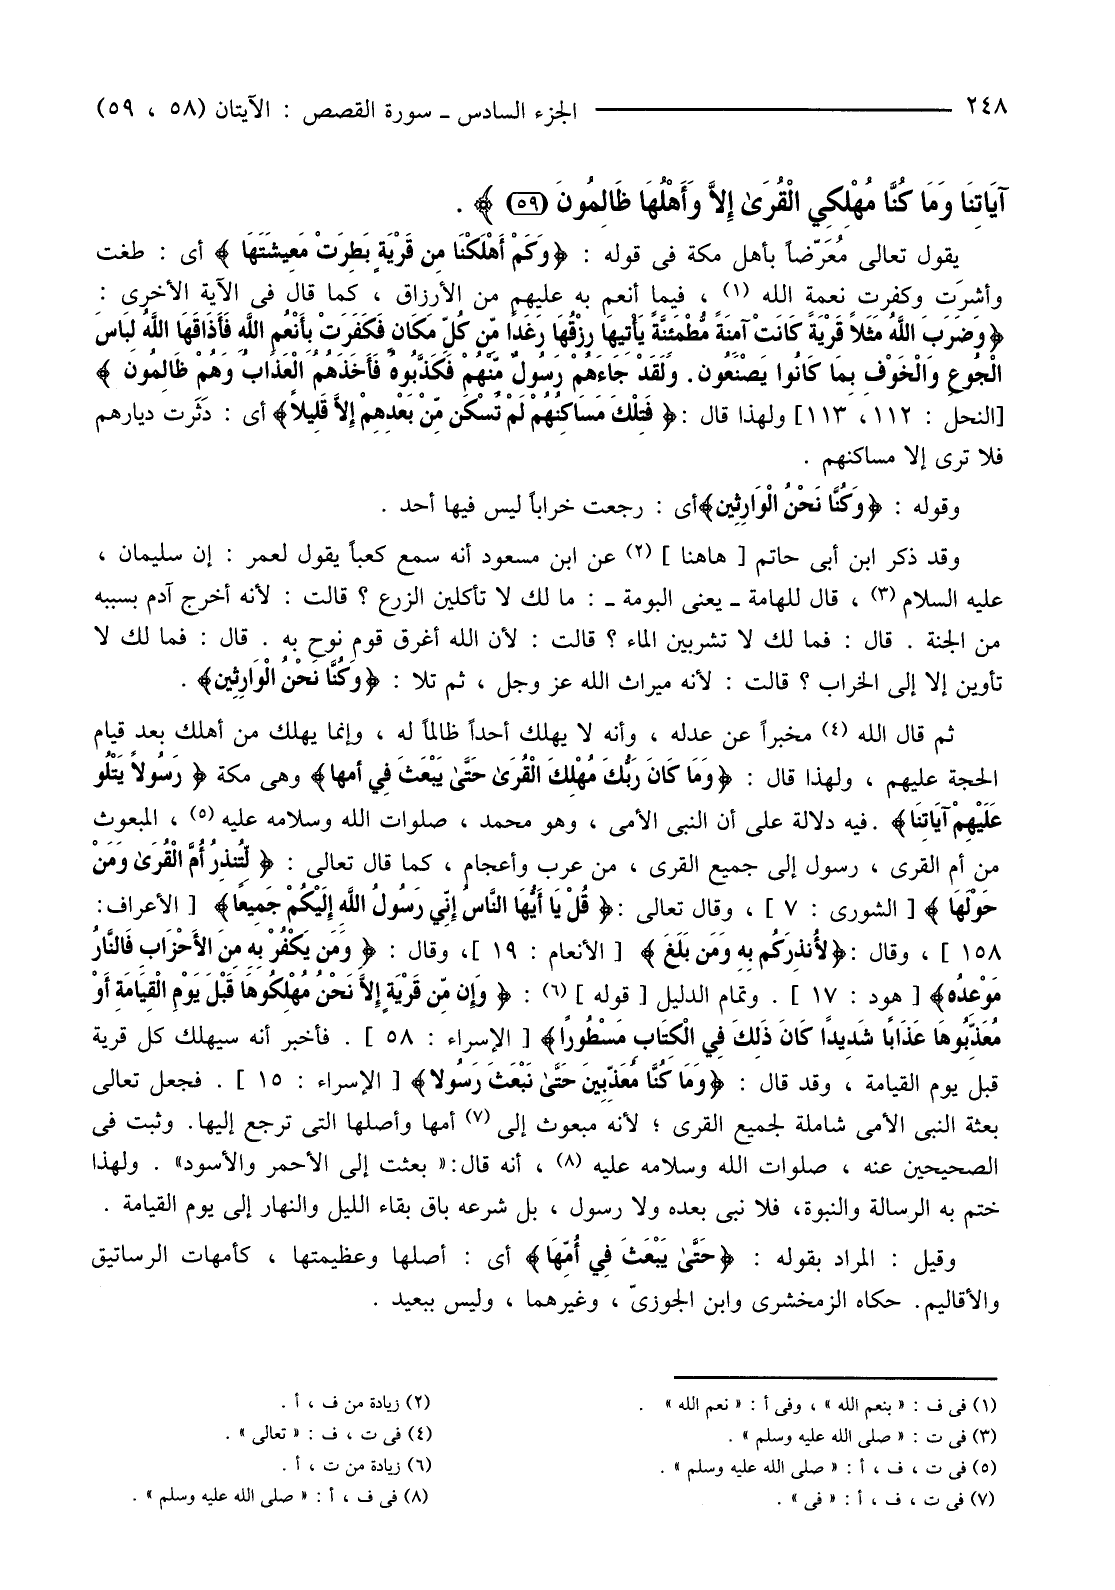 ٢٤٨ ـــــــــــــــــ الجزء السادس ـ سورة القصص : الآيتان (٥٨ ، ٥٩)
آيَاتِنَا وَمَا كُنَّا مُهْلِكِي الْقُرَىٰ إِلاَّ وَأَهْلُهَا ظَالِمُونَ (٥٩) ﴾ .
يقول تعالى مُعَرّضاً بأهل مكة فى قوله : ﴿وَكَمْ أَهْلَكْنَا مِن قَرْيَةٍ بَطِرَتْ مَعِيشَتَهَا ﴾ أى : طغت
وأشرَت وكفرت نعمة الله (١) ، فيما أنعم به عليهم من الأرزاق ، كما قال فى الآية الأخرى :
﴿وَضَرَبَ اللَّهُ مَثَلاً قَرْيَةً كَانَتْ آمِنَةً مُّطْمَئِنَّةً يَأْتِيهَا رِزْقُهَا رَغَدًا مِّن كُلِّ مَكَانٍ فَكَفَرَتْ بِأَنْعُمِ اللَّهِ فَأَذَاقَهَا اللَّهُ لِبَاسَ
الْجُوعِ وَالْخَوْفِ بِمَا كَانُوا يَصْنَعُون. وَلَقَدْ جَاءَهُمْ رَسُولٌ مِّنْهُمْ فَكَذَّبُوهُ فَأَخَذَهُمُ الْعَذَابُ وَهُمْ ظَالِمُون ﴾
[النحل : ١١٢، ١١٣] ولهذا قال :﴿ فَتِلْكَ مَسَاكِنُهُمْ لَمْ تُسْكَن مِّنْ بَعْدِهِمْ إِلاَّ قَلِيلاً﴾ أى : دَثَرت ديارهم
فلا ترى إلا مساكنهم .
وقوله : ﴿وَكُنَّا نَحْنُ الْوَارِثِين﴾أى : رجعت خراباً ليس فيها أحد .
وقد ذكر ابن أبى حاتم [ هاهنا ] (٢) عن ابن مسعود أنه سمع كعباً يقول لعمر : إن سليمان ،
عليه السلام (٣) ، قال للهامة ـ يعنى البومة ـ : ما لك لا تأكلين الزرع ؟ قالت : لأنه أخرج آدم بسببه
من الجنة . قال : فما لك لا تشربين الماء ؟ قالت : لأن الله أغرق قوم نوح به . قال : فما لك لا
تأوين إلا إلى الخراب ؟ قالت : لأنه ميراث الله عز وجل ، ثم تلا : ﴿وَكُنَّا نَحْنُ الْوَارِثِين﴾ .
ثم قال الله (٤) مخبراً عن عدله ، وأنه لا يهلك أحداً ظالماً له ، وإنما يهلك من أهلك بعد قيام
الحجة عليهم ، ولهذا قال : ﴿وَمَا كَانَ رَبُّكَ مُهْلِكَ الْقُرَىٰ حَتَّىٰ يَبْعَثَ فِي أمها﴾ وهى مكة ﴿ رَسُولاً يَتْلُو
عَلَيْهِمْ آيَاتِنَا﴾ .فيه دلالة على أن النبى الأمى ، وهو محمد ، صلوات الله وسلامه عليه (٥) ، المبعوث
من أم القرى ، رسول إلى جميع القرى ، من عرب وأعجام ، كما قال تعالى : ﴿ لِّتُنذِرَ أُمَّ الْقُرَىٰ وَمَنْ
حَوْلَهَا ﴾ [ الشورى : ٧ ] ، وقال تعالى :﴿ قُلْ يَا أَيُّهَا النَّاسُ إِنِّي رَسُولُ اللَّهِ إِلَيْكُمْ جَمِيعًا﴾ [ الأعراف:
١٥٨ ] ، وقال :﴿لأُنذِرَكُم بِهِ وَمَن بَلَغَ ﴾ [ الأنعام : ١٩ ]، وقال : ﴿ وَمَن يَكْفُرْ بِهِ مِنَ الأَحْزَابِ فَالنَّارُ
مَوْعِدُه﴾ [ هود : ١٧ ] . وتمام الدليل [ قوله ] (٦) : ﴿ وَإِن مِّن قَرْيَةٍ إِلاَّ نَحْنُ مُهْلِكُوهَا قَبْلَ يَوْمِ الْقِيَامَةِ أَوْ
مُعَذِّبُوهَا عَذَابًا شَدِيدًا كَانَ ذَلِكَ فِي الْكِتَابِ مَسْطُورًا﴾ [ الإسراء : ٥٨ ] . فأخبر أنه سيهلك كل قرية
قبل يوم القيامة ، وقد قال : ﴿وَمَا كُنَّا مُعَذِّبِينَ حَتَّىٰ نَبْعَثَ رَسُولا﴾ [ الإسراء : ١٥ ] . فجعل تعالى
بعثة النبى الأمى شاملة لجميع القرى ؛ لأنه مبعوث إلى (٧) أمها وأصلها التى ترجع إليها. وثبت فى
الصحيحين عنه ، صلوات الله وسلامه عليه (٨) ، أنه قال:« بعثت إلى الأحمر والأسود» . ولهذا
ختم به الرسالة والنبوة، فلا نبى بعده ولا رسول ، بل شرعه باق بقاء الليل والنهار إلى يوم القيامة .
وقيل : المراد بقوله : ﴿حَتَّىٰ يَبْعَثَ فِي أُمِّهَا﴾ أى : أصلها وعظيمتها ، كأمهات الرساتيق
والأقاليم. حكاه الزمخشرى وابن الجوزىّ ، وغيرهما ، وليس ببعيد .
(١) فى ف : « بنعم الله » ، وفى أ : « نعم الله » .
(٢) زيادة من ف ، أ .
(٣) فى ت : « صلى الله عليه وسلم » .
(٤) فى ت ، ف : « تعالى » .
(٥) فى ت ، ف ، أ : « صلى الله عليه وسلم » .
(٦) زيادة من ت ، أ .
(٧) فى ت ، ف ، أ : « فى » .
(٨) فى ف ، أ : « صلى الله عليه وسلم » .